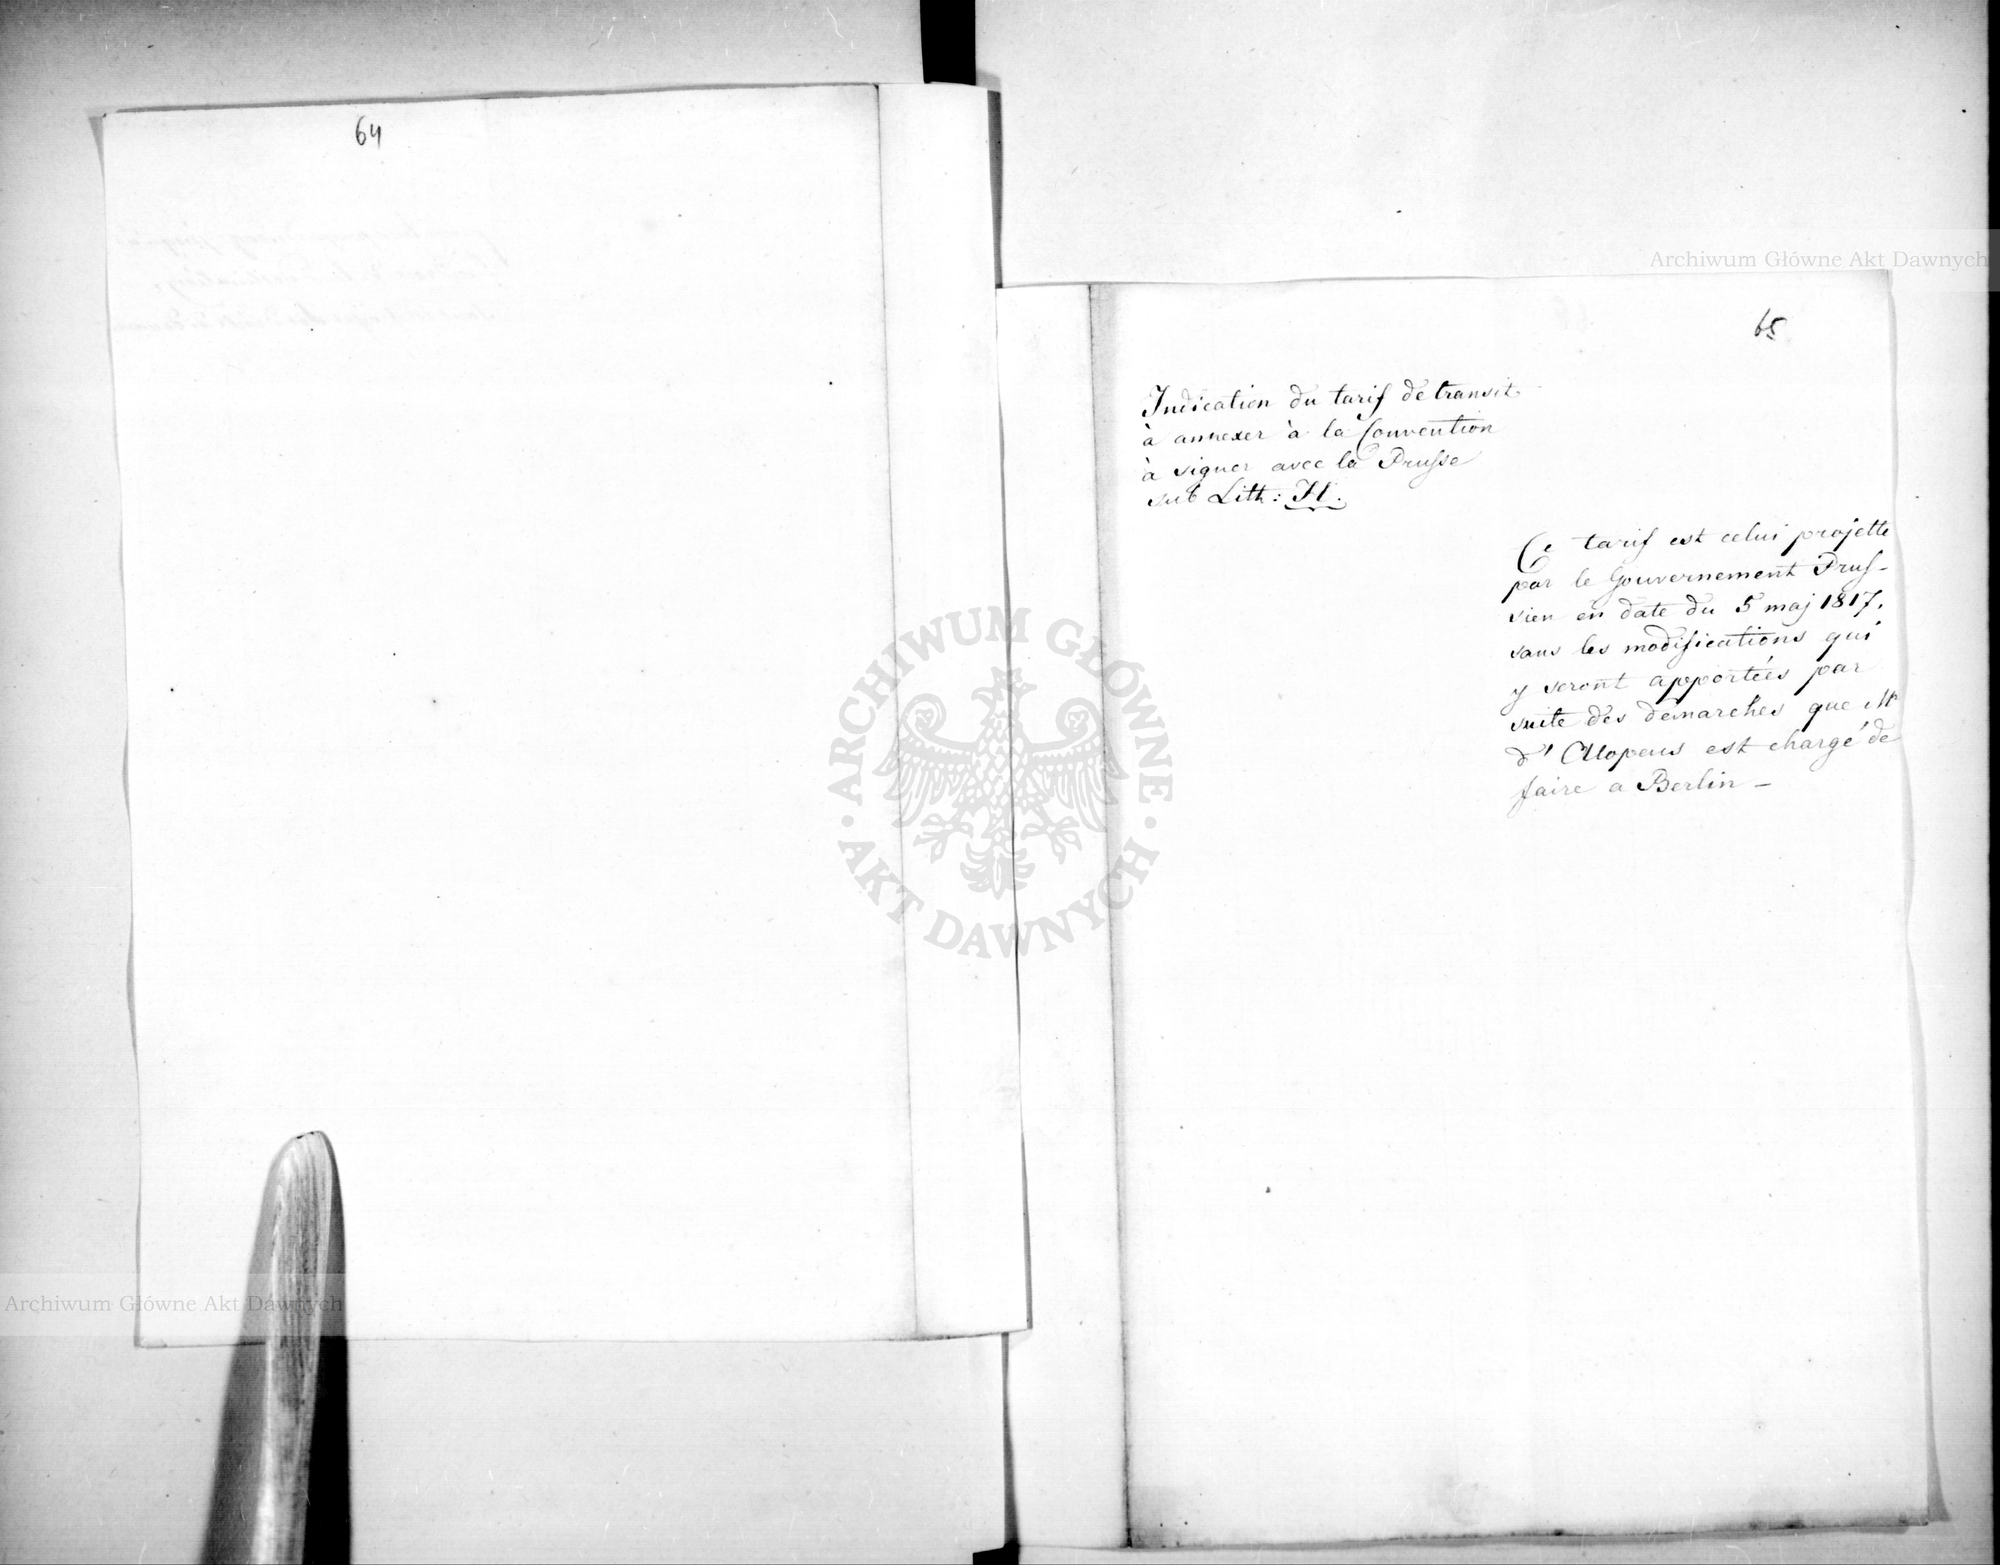 64
65
Indication du tarif de transit
à annexer à la Convention
à signer avec la Prusse
sub Lith: H.
Ce tarif est celui projette
par le Gouvernement Prus-
sien en date du 5 maj 1817.
sans les modifications qui
y seront apportées par
suite des demarches que Mr
d'Alopeus est chargé de
faire a Berlin —
Archiwum Główne Akt Dawnych
ARCHIWUM GŁÓWNE
AKT DAWNYCH
Archiwum Główne Akt Dawnych